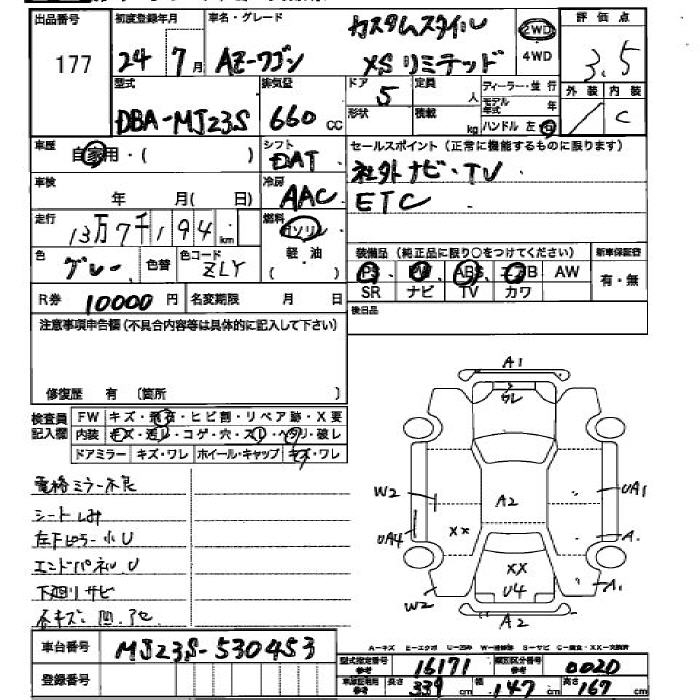 出品番号 初度登録年月 車名・グレード カスタムスタイル 2WD 評価点
177 24 7月 AZ-ワゴン XSリミテッド 4WD 3.5
型式 排気量 ドア 定員 ディーラー・並行 外装 内装
DBA-MJ23S 660 cc 5 人 モデル年式 年 / C
形状 積載 kg ハンドル 左 右
車歴 自家用・( ) シフト DAT セールスポイント(正常に機能するものに限ります)
車検 年 月( 日) 冷房 AAC 社外ナビ・TV
ETC
走行 13万7千194 km 燃料 ガソリン
軽・油
( )
色 グレー 色替 色コード ZLY
装備品(純正品に限り○をつけてください) 新車保証書
PS PW ABS エアB AW 有・無
SR ナビ TV カワ
R券 10000円 名変期限 月 日 後日品
注意事項申告欄(不具合内容等は具体的に記入して下さい)
修復歴 有 〔箇所 〕
検査員記入欄 FW キズ・飛石・ヒビ割・リペア跡・X要
内装 キズ・汚レ・コゲ・穴・スレ・ヘタリ・破レ
ドアミラー キズ・ワレ ホイール・キャップ キズ・ワレ
電格ミラー不良
シートしみ
左下ピラー小U
エンドパネルU
下廻りサビ
A1
SL
W2 A2 UA1
UA4 XX A.
XX
U4 A.
W2 A2
車台番号 MJ23S-530453
登録番号
A=キズ E=エクボ U=凹み W=補修跡 S=サビ C=腐食・XX=交換済
型式指定番号 参考 16171 類別区分番号 参考 0020
長さ 339 cm 幅 147 cm 高さ 167 cm